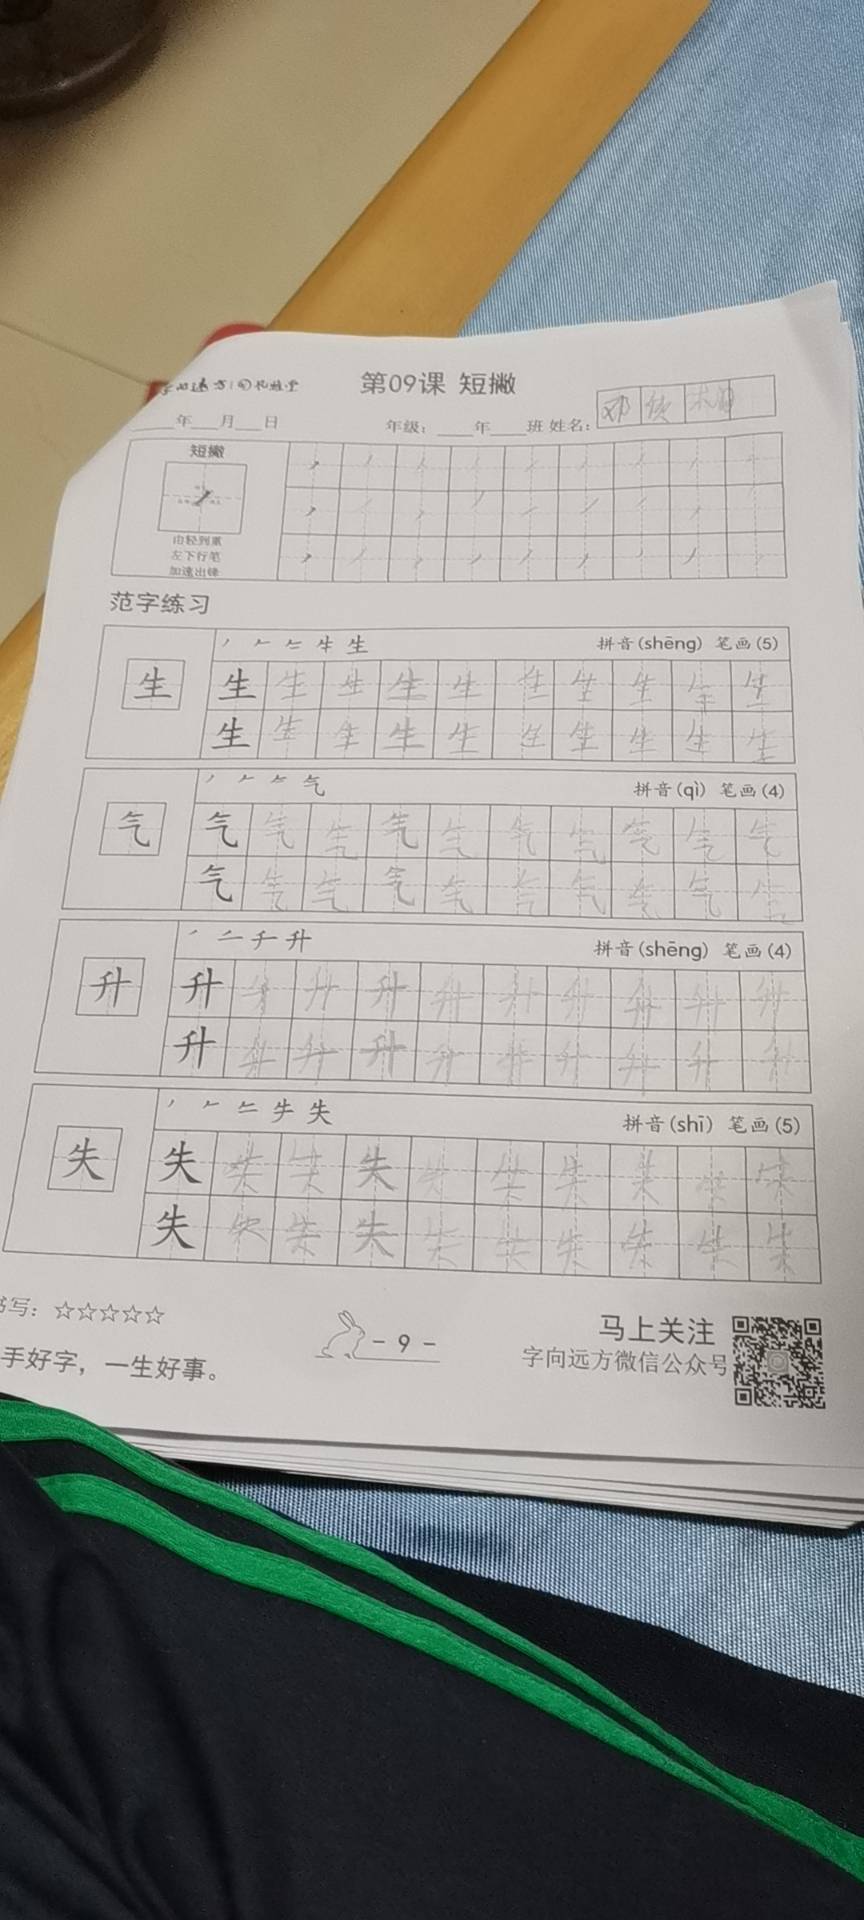 第09课 短撇
年 月 日 年级： 年 班 姓名：邓
短撇
由轻到重
左下行笔
加速出锋
范字练习
生 拼音(shēng) 笔画(5)
生 生 生 生 生 生 生 生 生 生 生
生 生 生 生 生 生 生 生 生 生
气 拼音(qì) 笔画(4)
气 气 气 气 气 气 气 气 气 气 气
气 气 气 气 气 气 气 气 气 气
升 拼音(shēng) 笔画(4)
升 升 升 升 升 升 升 升 升 升 升
升 升 升 升 升 升 升 升 升 升
失 拼音(shī) 笔画(5)
失 失 失 失 失 失 失 失 失 失 失
失 失 失 失 失 失 失 失 失 失
书写：☆☆☆☆☆
手好字，一生好事。
- 9 -
马上关注
字向远方微信公众号